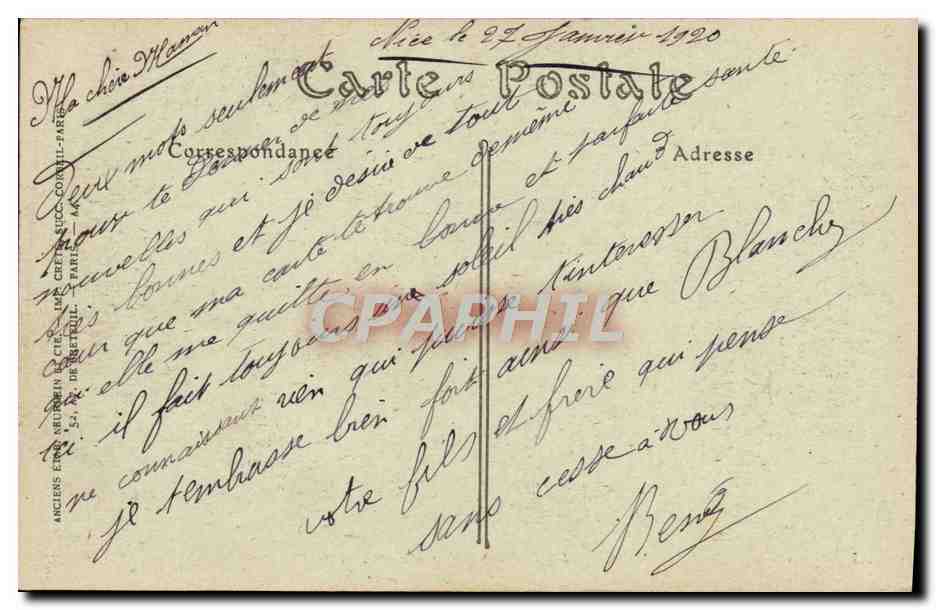 Nice le 27 Janvier 1920
Ma chère Maman
Carte Postale
Correspondance
Adresse
Deux mots seulement
pour te donner de mes
nouvelles qui sont toujours
très bonnes et je désire de tout
cœur que ma carte te trouve de même
qu'elle me quitte, en bonne et parfaite santé.
ici il fait toujours une soleil très chaud
ne connaissant rien qui puisse t'interesser
je t'embrasse bien fort ainsi que Blanche
votre fils et frère qui pense
sans cesse à vous
René
CPAPHIL
ANCIENS ETAB. NEURDEIN ET CIE. IMP. CRÉTÉ. SUCC. CORBEIL-PARIS
52, AV. DE BRETEUIL. — PARIS. —